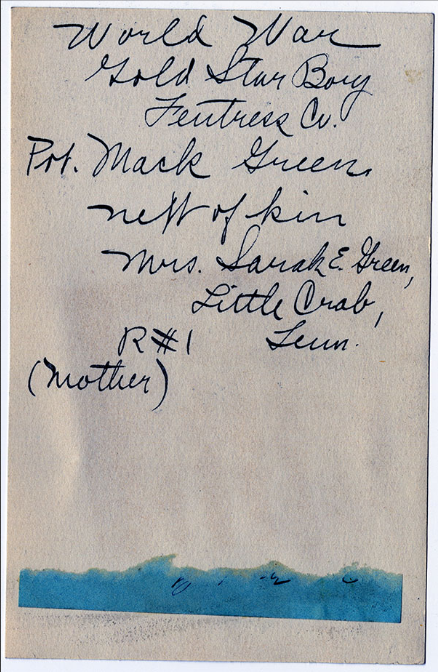 World War
Gold Star Boy
Fentress Co.
Pvt. Mack Green,
next of kin
Mrs. Sarah E. Green,
Little Crab,
R#1 Tenn.
(Mother)